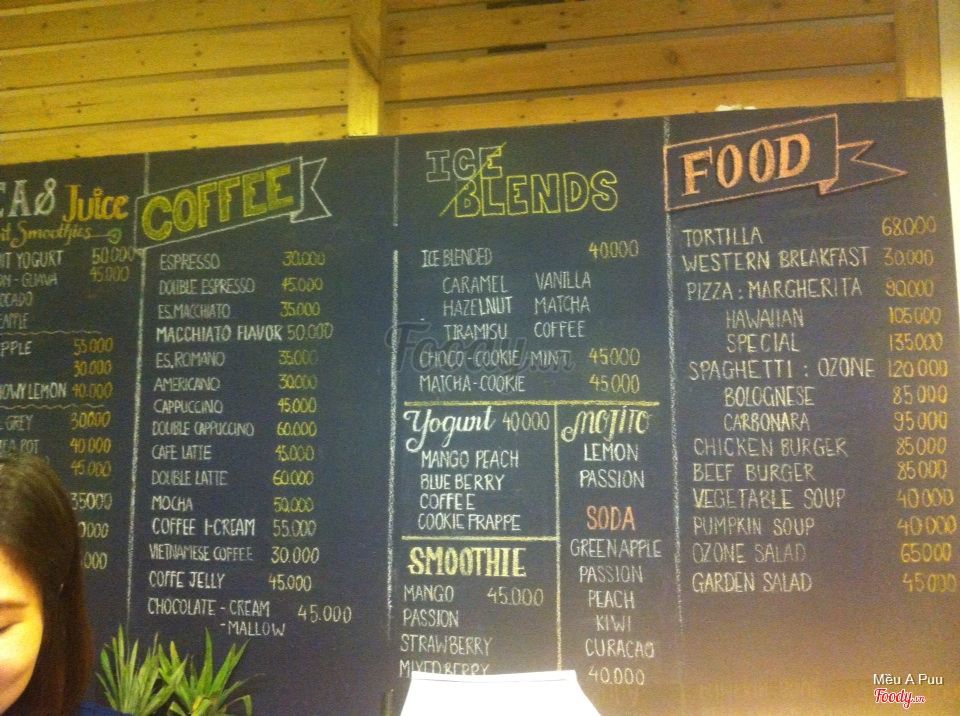 EAS Juice
it Smoothies
IT YOGURT 50.000
GUAVA 45.000
OCADO
EAPPLE
APPLE 55.000
30.000
OWY LEMON 40.000
GREY 30.000
POT 40.000
45.000
35000
COFFEE
ESPRESSO 30.000
DOUBLE ESPRESSO 45.000
ES.MACCHIATO 35.000
MACCHIATO FLAVOR 50.000
ES,ROMANO 35.000
AMERICANO 30.000
CAPPUCCINO 45,000
DOUBLE CAPPUCCINO 60.000
CAFE LATTE 45.000
DOUBLE LATTE 60.000
MOCHA 50,000
COFFEE I-CREAM 55.000
VIETNAMESE COFFEE 30.000
COFFE JELLY 45.000
CHOCOLATE - CREAM 45.000
-MALLOW
ICE BLENDS
ICE BLENDED 40.000
CARAMEL VANILLA
HAZELNUT MATCHA
TIRAMISU COFFEE
CHOCO-COOKIE/MINT 45000
MATCHA-COOKIE 45.000
Yogurt 40000
MANGO PEACH
BLUE BERRY
COFFEE
COOKIE FRAPPE
SMOOTHIE
MANGO 45.000
PASSION
STRAWBERRY
MIXED BERRY
MOJITO
LEMON
PASSION
SODA
GREEN APPLE
PASSION
PEACH
KIWI
CURACAO
40.000
FOOD
TORTILLA 68.000
WESTERN BREAKFAST 30.000
PIZZA : MARGHERITA 90,000
HAWAIIAN 105000
SPECIAL 135.000
SPAGHETTI : OZONE 120000
BOLOGNESE 85000
CARBONARA 95000
CHICKEN BURGER 85000
BEEF BURGER 85000
VEGETABLE SOUP 40000
PUMPKIN SOUP 40000
OZONE SALAD 65000
GARDEN SALAD 45000
Foody.vn
Mều A Puu
Foody.vn